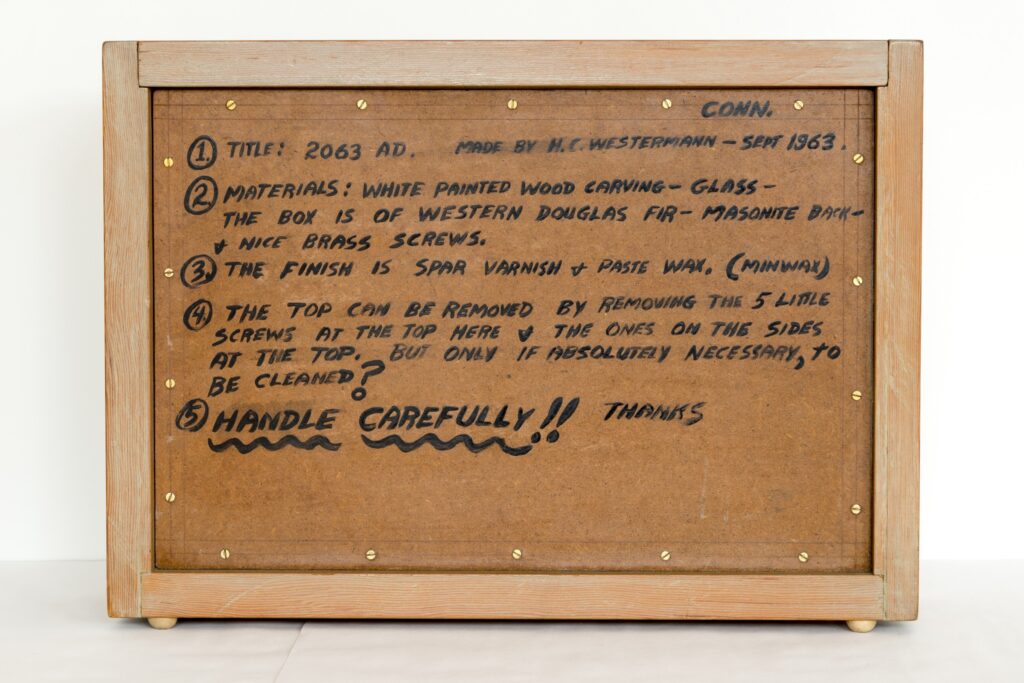 CONN.
1. TITLE: 2063 AD. MADE BY H.C. WESTERMANN - SEPT 1963.
2 MATERIALS: WHITE PAINTED WOOD CARVING - GLASS -
THE BOX IS OF WESTERN DOUGLAS FIR - MASONITE BACK -
& NICE BRASS SCREWS.
3. THE FINISH IS SPAR VARNISH & PASTE WAX. (MINWAX)
4. THE TOP CAN BE REMOVED BY REMOVING THE 5 LITTLE
SCREWS AT THE TOP HERE & THE ONES ON THE SIDES
AT THE TOP. BUT ONLY IF ABSOLUTELY NECESSARY, TO
BE CLEANED?
5 HANDLE CAREFULLY!! THANKS